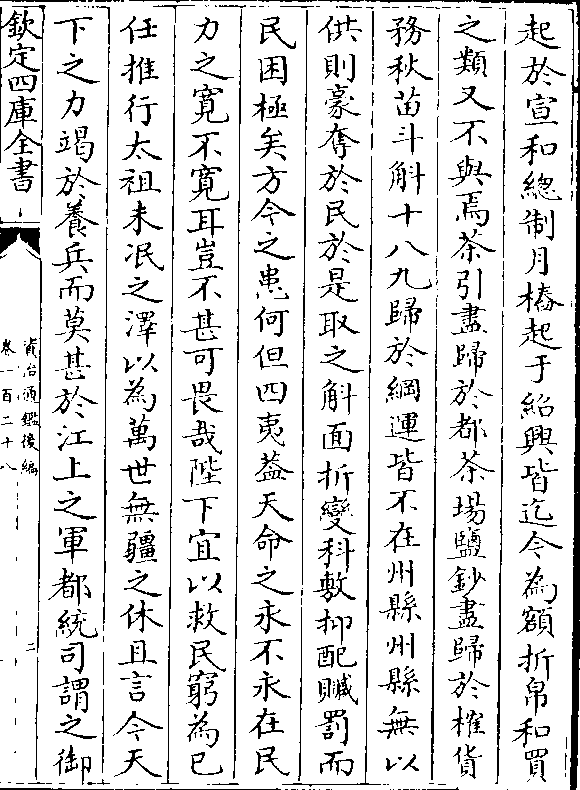 起於宣和總制月樁起于紹興皆迄今為額折帛和買
之類又不與焉茶引盡歸於都茶場鹽鈔盡歸於榷貨
務秋苗斗斛十八九歸於綱運皆不在州縣州縣無以
供則豪奪於民於是取之斛面折變科敷抑配贓罰而
民困極矣方今之患何但四夷葢天命之永不永在民
力之寛不寛耳豈不甚可畏哉陛下宜以救民窮為已
任推行太祖未泯之澤以為萬世無疆之休且言今天
下之力竭於養兵而莫甚於江上之軍都統司謂之御
欽定四庫全書
資治通鑑後編
卷一百二十八
二